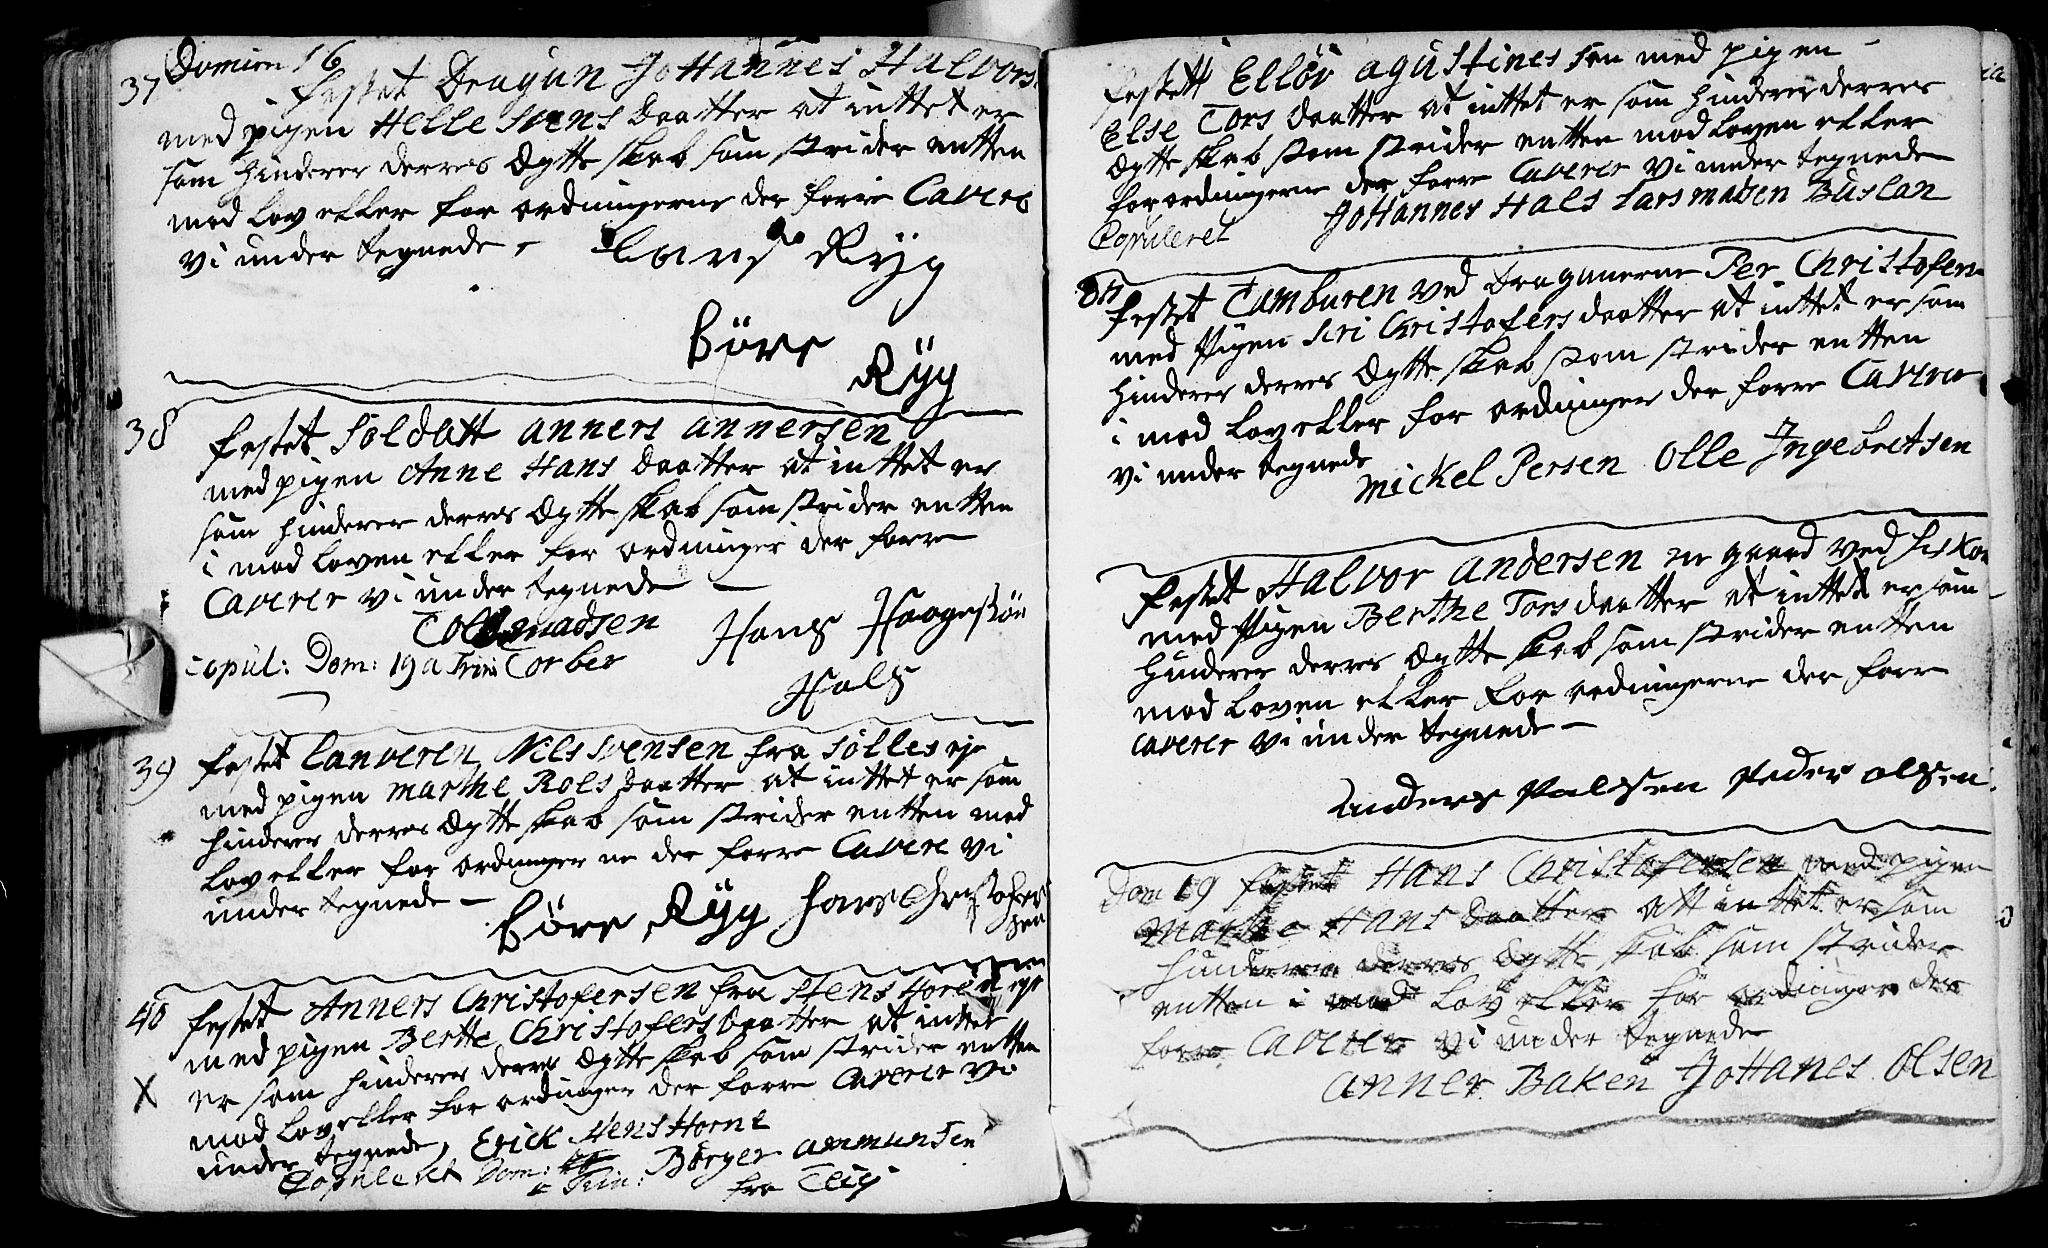 37 Domin 16
festet Dragun Johannes Halvors.
med pigen Helle Svens daatter at inttet er
som hinderer derres Ægtte skab som strider entten
mod lov eller for ordningerne der forre Cavere
vi under tegnede -
Lars Ryg
Böre
Ryg
38 festet Soldatt anners annersen
med pigen Anne Hans daatter at inttet er
som hinderer derres Ægtte skab som strider entten
i mod loven eller for ordninger der forre
Caverer vi under tegnede
madsen Hans Haagensön
Copul: Dom: 19 a Trin: Torber
Hals
39 festet Nils Svensen fra Sölles eje
med pigen Marthe Roels daatter at inttet er som
hinderer derres Ægtte skab som strider entten mod
lov eller for ordninger ne der forre Cavere vi
under tegnede -
Böre Ryg Hans Christofer
sen
40 festet Anners Christofersen fra Stens Horne eje
med pigen Berthe Christofers daatter at inttet
er som hinderer derres Ægtte skab som strider entten
X mod lov eller for ordninger der forre Caverer vi
under tegnede, Erick Stens Horne
Copuleret Dom: Börger ammunsen
a Trin: fra
festet Ellöv agustines sen med pigen
Else Tors daatter at inttet er som hinderer derres
Ægtte skab som strider entten mod loven eller
forordningerne der forre Caverer vi under tegnede
Johannes Hals Lars madsen Buslan
Copuleret
festet Tamburen ved Dragunerne Per Christofers
med Pigen Siri Christofers daatter at inttet er som
hinderer derres Ægtte skab som strider entten
i mod lov eller for ordninger der forre Caverer
vi under tegnede
Mickel Persen Olle Ingebretsen
festet Halvor Andersen ne gaard ved
med Pigen Berthe Tors daatter at inttet er som
hinderer derres Ægtte skab som strider entten
mod loven eller for ordningerne der forr
caverer vi under tegnede -
Anders Palsen Peder olsen
Dom 19 festet Hans Christofersen med pigen
Marthe Hans daatter att inttet er som
hinderer derres Ægtte skab som strider
entten i mod lov eller för ordninger der
forre Caverer vi under tegnede
Anner Baken Johanes Olsen